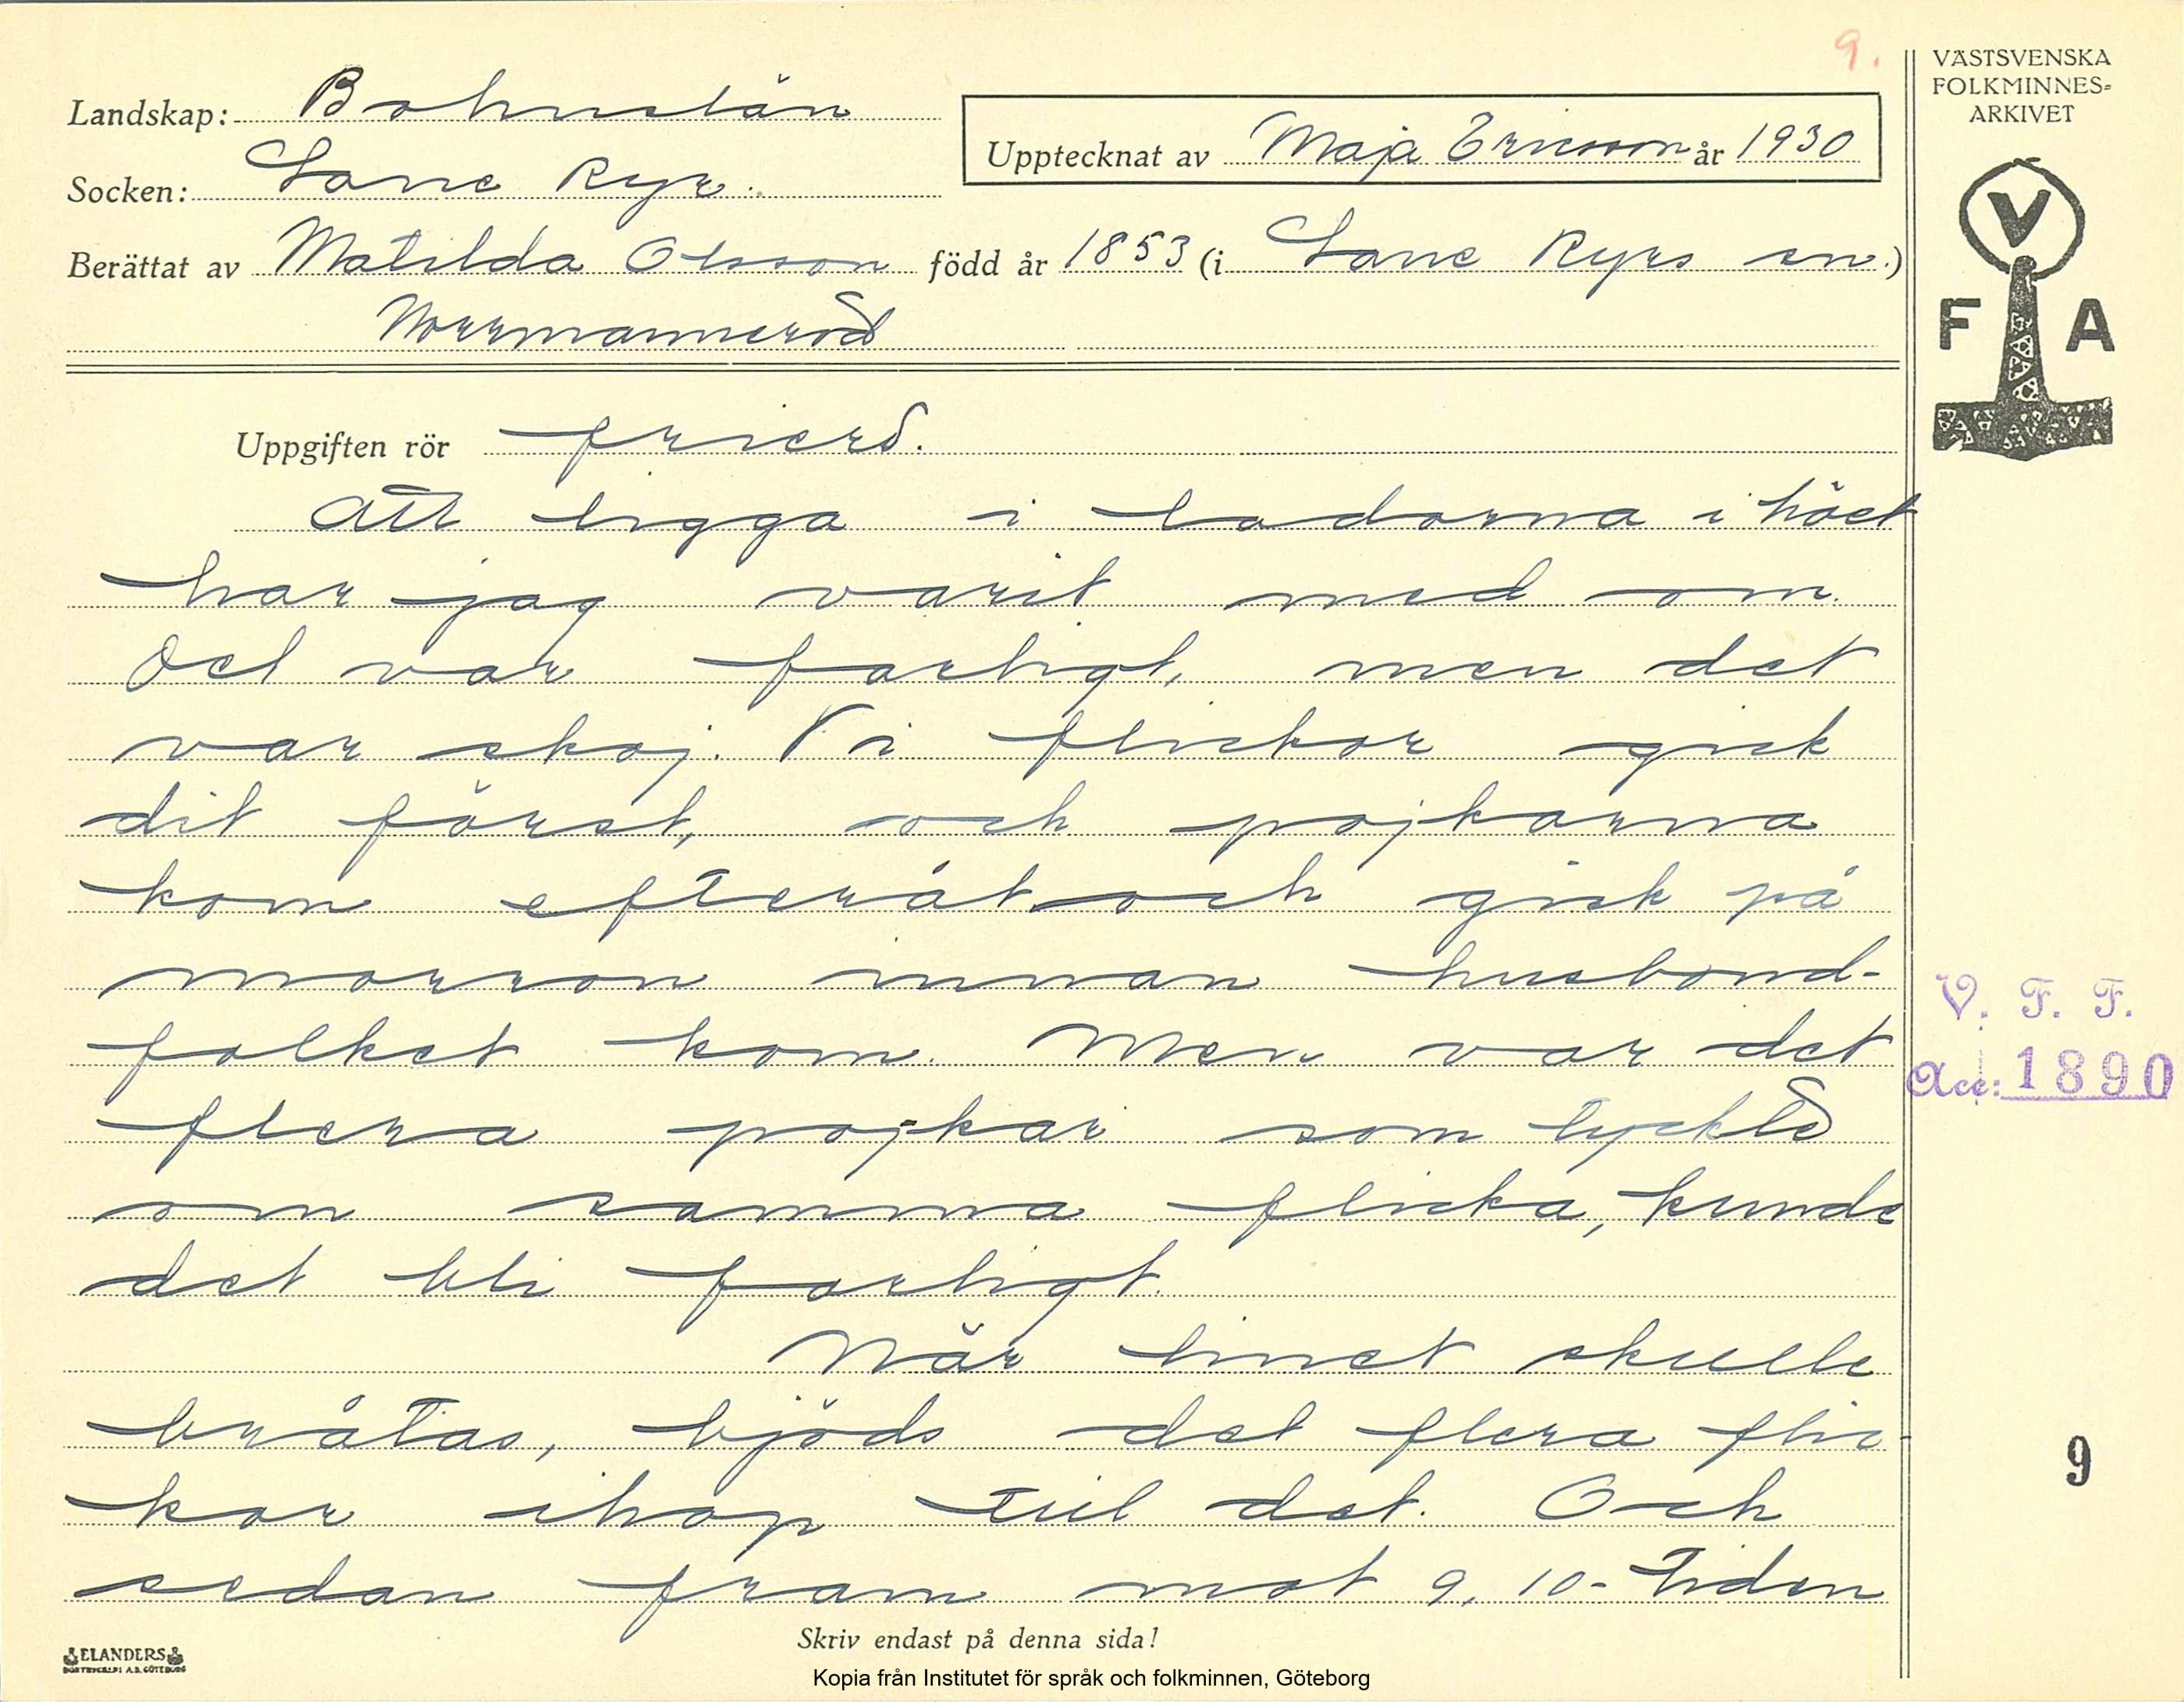 9.
VÄSTSVENSKA
FOLKMINNES-
ARKIVET
V
F A
Landskap: Bohuslän
Upptecknat av Maja Ericsson år 1930
Socken: Lane Ryr.
Berättat av Matilda Olsson född år 1853 (i Lane Ryrs sn.)
Norrmanneröd
Uppgiften rör frieri.
Att ligga i ladorna i höet
har jag varit med om.
Det var farligt, men det
var skoj. Vi flickor gick
dit först, och pojkarna
kom efteråt och gick på
morron innan husbond-
folket kom. Men var det
flera pojkar som tyckte
om samma flicka, kunde
det bli farligt.
När linet skulle
bråtas, bjöds det flera flic-
kor ihop till det. Och
sedan fram mot 9, 10-tiden
V. F. F.
Acc: 1890
9
Skriv endast på denna sida!
ELANDERS
BOKTRYCKERI A.B. GÖTEBORG
Kopia från Institutet för språk och folkminnen, Göteborg